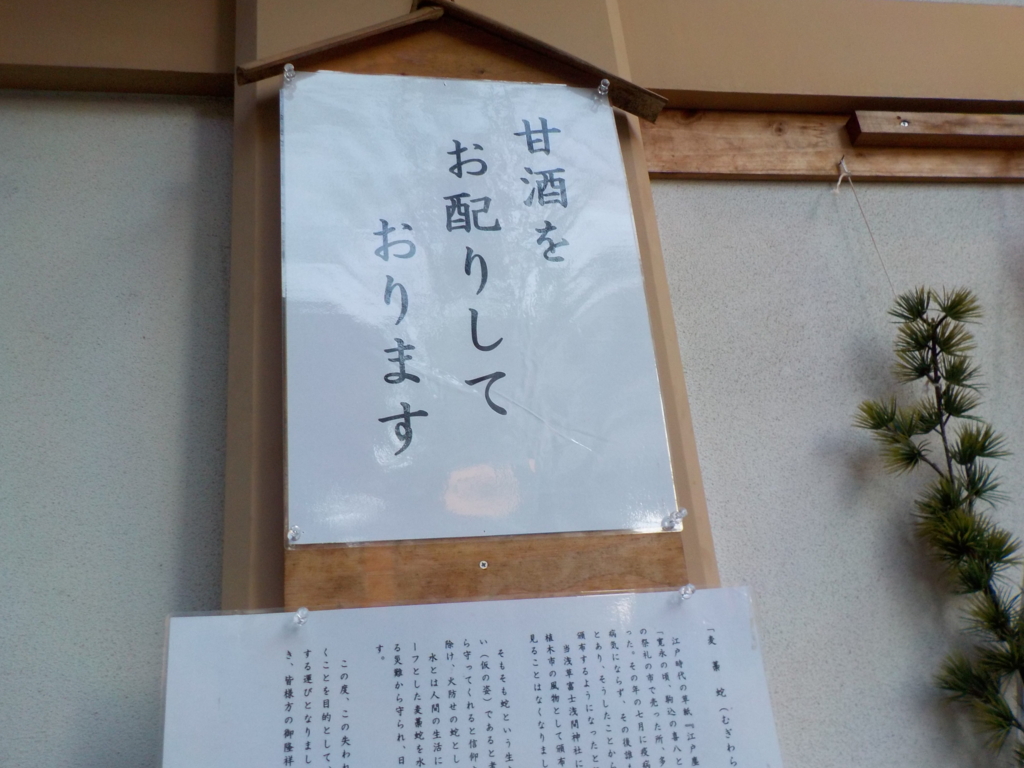 甘酒を
お配りして
おります
「麦藁蛇（むぎわら
江戸時代の草紙『江戸塵
『寛永の頃、駒込の喜八と
の祭礼の市で売った所、多
った。その年の七月に疫病
病気にならず、その後誰
とあり、そうしたことから
頒布するようになったと
当浅草富士浅間神社に
植木市の風物として頒布
見ることはなくなりまし
そもそも蛇という生
い（仮の姿）であると考
ら守ってくれると信仰
除け、火防せの蛇とし
水とは人間の生活に
ーフとした麦藁蛇を水
る災難から守られ、日
す。
この度、この失われ
くことを目的として、
する運びとなりまし
き、皆様方の御隆祥